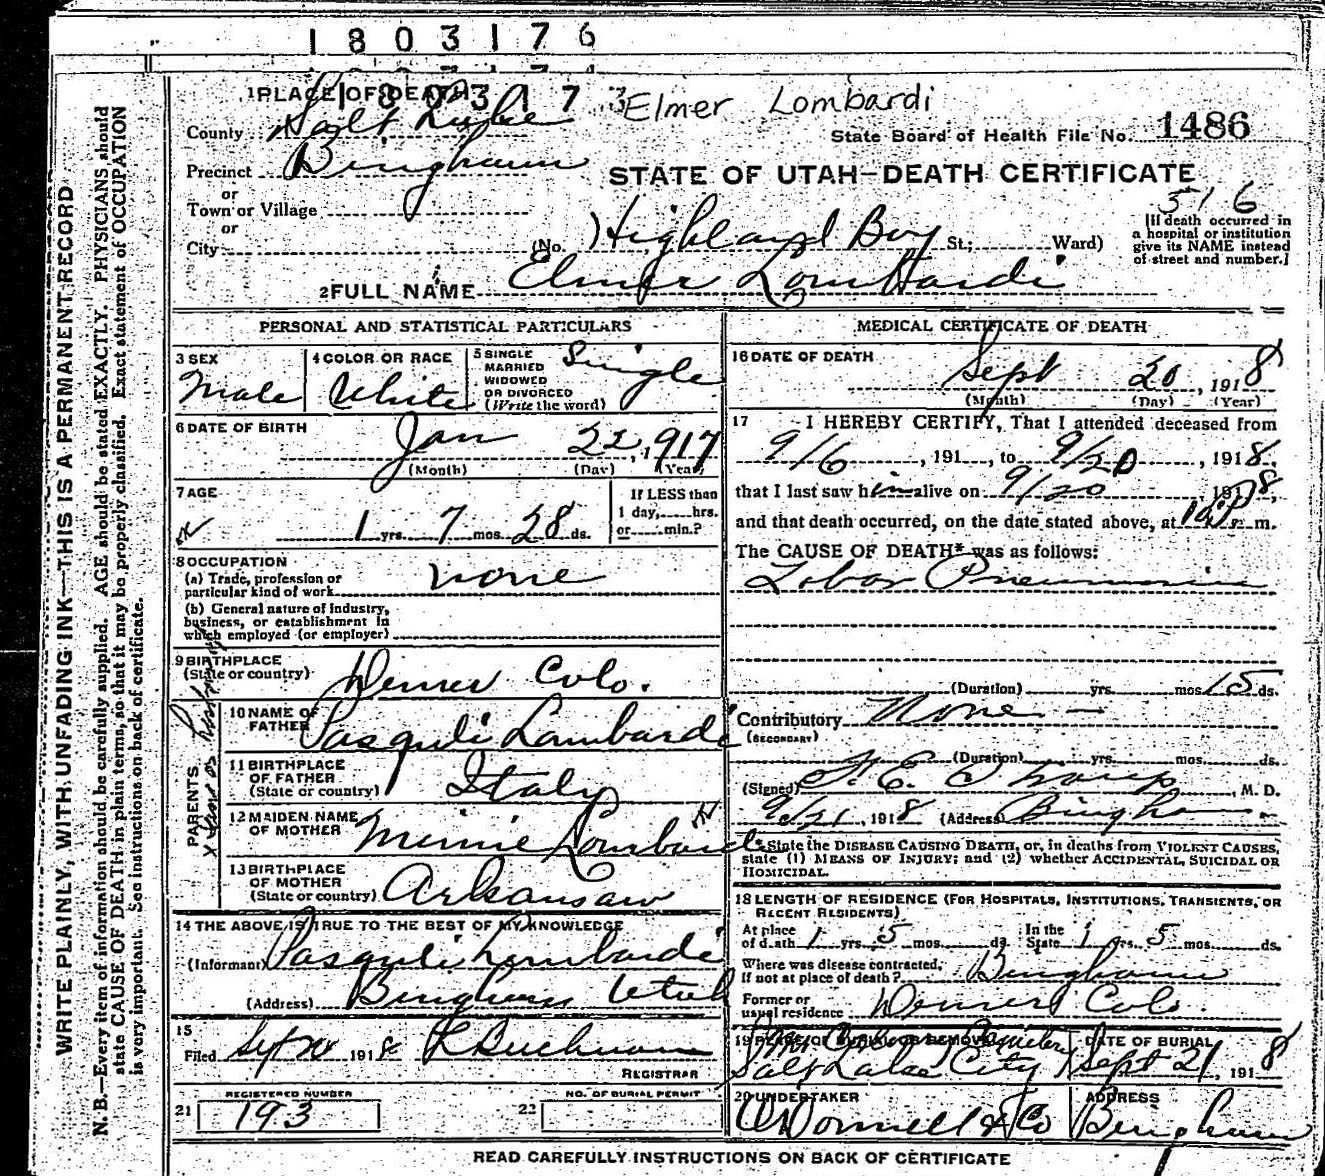 1803176
1 PLACE OF DEATH
180317
3
Elmer Lombardi
County Salt Lake
State Board of Health File No. 1486
Precinct Bingham
STATE OF UTAH—DEATH CERTIFICATE
or
Town or Village
516
or
[If death occurred in
a hospital or institution
give its NAME instead
of street and number.]
City (No. Highland Boy St.; Ward)
2 FULL NAME Elmer Lombardi
PERSONAL AND STATISTICAL PARTICULARS
3 SEX Male
4 COLOR OR RACE White
5 SINGLE
MARRIED
WIDOWED
OR DIVORCED
(Write the word) Single
6 DATE OF BIRTH
Jan 22, 1917
(Month) (Day) (Year)
7 AGE
1 yrs. 7 mos. 28 ds.
If LESS than
1 day, hrs.
or min.?
8 OCCUPATION
(a) Trade, profession or
particular kind of work none
(b) General nature of industry,
business, or establishment in
which employed (or employer)
9 BIRTHPLACE
(State or country) Denver Colo.
PARENTS
10 NAME OF
FATHER Pasquli Lombardi
11 BIRTHPLACE
OF FATHER
(State or country) Italy
12 MAIDEN NAME
OF MOTHER Minnie Lombardi
13 BIRTHPLACE
OF MOTHER
(State or country) Arkansaw
14 THE ABOVE IS TRUE TO THE BEST OF MY KNOWLEDGE
(Informant) Pasquli Lombardi
(Address) Bingham Utah
15
Filed Sept 20 1918
REGISTRAR
REGISTERED NUMBER
21 193
NO. OF BURIAL PERMIT
22
MEDICAL CERTIFICATE OF DEATH
16 DATE OF DEATH
Sept 20, 1918
(Month) (Day) (Year)
17 I HEREBY CERTIFY, That I attended deceased from
9/6, 191 , to 9/20, 1918,
that I last saw him alive on 9/20 1918,
and that death occurred, on the date stated above, at m.
The CAUSE OF DEATH* was as follows:
Lobar Pneumonia
(Duration) yrs. mos. 15 ds.
Contributory None —
(SECONDARY)
(Duration) yrs. mos. ds.
(Signed) , M. D.
9/21, 1918 (Address) Bingham
*State the DISEASE CAUSING DEATH, or, in deaths from VIOLENT CAUSES,
state (1) MEANS OF INJURY; and (2) whether ACCIDENTAL, SUICIDAL OR
HOMICIDAL.
18 LENGTH OF RESIDENCE (FOR HOSPITALS, INSTITUTIONS, TRANSIENTS, OR
RECENT RESIDENTS)
At place
of death 1 yrs. 5 mos. ds.
In the
State 1 yrs. 5 mos. ds.
Where was disease contracted,
if not at place of death? Bingham
Former or
usual residence Denver Colo.
19 PLACE OF BURIAL OR REMOVAL
Cemetery
Salt Lake City
DATE OF BURIAL
Sept 21, 1918
20 UNDERTAKER
O'Donnell & Co
ADDRESS
Bingham
READ CAREFULLY INSTRUCTIONS ON BACK OF CERTIFICATE
WRITE PLAINLY, WITH UNFADING INK—THIS IS A PERMANENT RECORD
N. B.—Every item of information should be carefully supplied. AGE should be stated EXACTLY. PHYSICIANS should
state CAUSE OF DEATH in plain terms, so that it may be properly classified. Exact statement of OCCUPATION
is very important. See instructions on back of certificate.